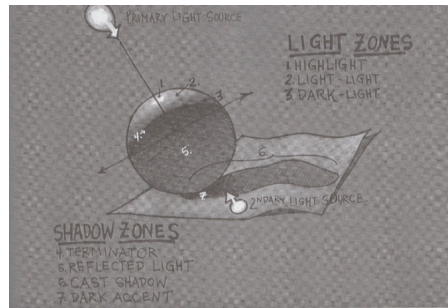 PRIMARY LIGHT SOURCE
LIGHT ZONES
1 HIGHLIGHT
2. LIGHT-LIGHT
3. DARK-LIGHT
1.
2.
3
4.
5.
6
7
2NDARY LIGHT SOURCE
SHADOW ZONES
4. TERMINATOR
5. REFLECTED LIGHT
6. CAST SHADOW
7 DARK ACCENT